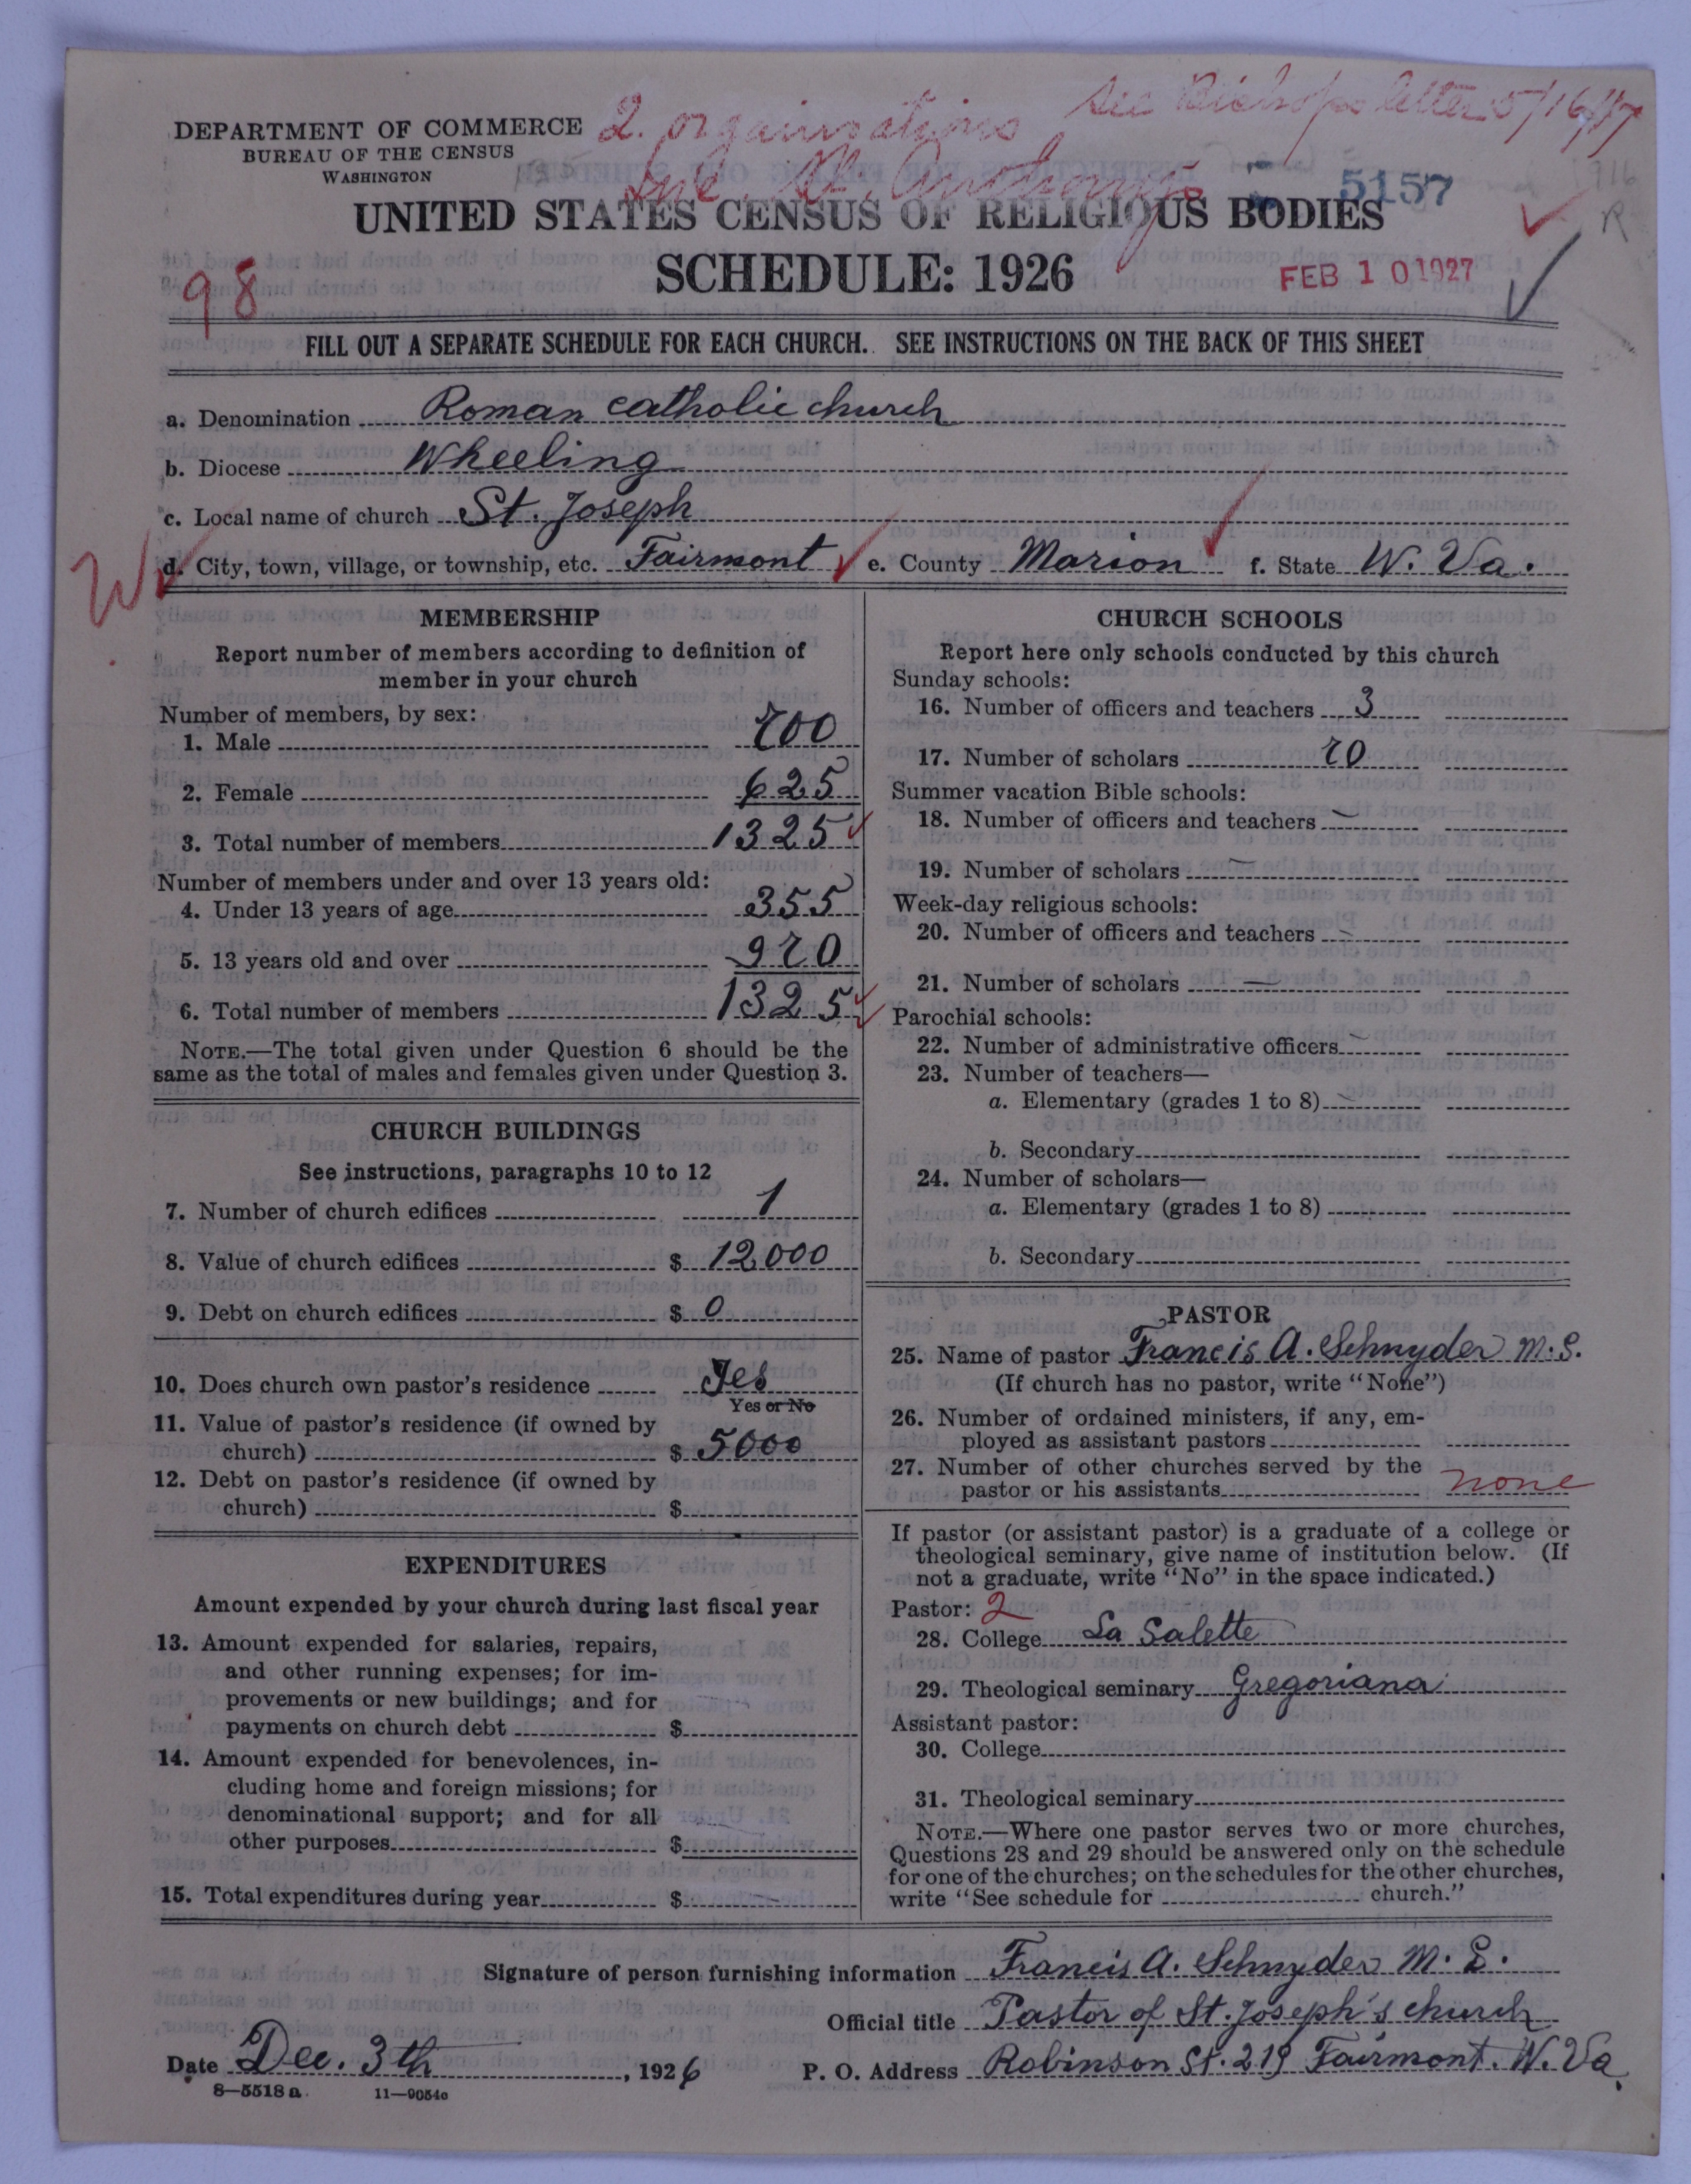 2. organizations See Bishops letter 5/16/17
DEPARTMENT OF COMMERCE
BUREAU OF THE CENSUS
WASHINGTON
5157
UNITED STATES CENSUS OF RELIGIOUS BODIES
SCHEDULE: 1926
98
FEB 10 1927
FILL OUT A SEPARATE SCHEDULE FOR EACH CHURCH. SEE INSTRUCTIONS ON THE BACK OF THIS SHEET
a. Denomination Roman catholic church
b. Diocese Wheeling
c. Local name of church St. Joseph
d. City, town, village, or township, etc. Fairmont e. County Marion f. State W. Va.
MEMBERSHIP
Report number of members according to definition of
member in your church
Number of members, by sex:
1. Male 700
2. Female 625
3. Total number of members 1325
Number of members under and over 13 years old:
4. Under 13 years of age 355
5. 13 years old and over 970
6. Total number of members 1325
NOTE.—The total given under Question 6 should be the
same as the total of males and females given under Question 3.
CHURCH BUILDINGS
See instructions, paragraphs 10 to 12
7. Number of church edifices 1
8. Value of church edifices $ 12,000
9. Debt on church edifices $ 0
10. Does church own pastor's residence Yes
Yes or No
11. Value of pastor's residence (if owned by
church) $ 5000
12. Debt on pastor's residence (if owned by
church) $
EXPENDITURES
Amount expended by your church during last fiscal year
13. Amount expended for salaries, repairs,
and other running expenses; for im-
provements or new buildings; and for
payments on church debt $
14. Amount expended for benevolences, in-
cluding home and foreign missions; for
denominational support; and for all
other purposes $
15. Total expenditures during year $
CHURCH SCHOOLS
Report here only schools conducted by this church
Sunday schools:
16. Number of officers and teachers 3
17. Number of scholars 70
Summer vacation Bible schools:
18. Number of officers and teachers —
19. Number of scholars —
Week-day religious schools:
20. Number of officers and teachers —
21. Number of scholars —
Parochial schools:
22. Number of administrative officers —
23. Number of teachers—
a. Elementary (grades 1 to 8) —
b. Secondary
24. Number of scholars—
a. Elementary (grades 1 to 8)
b. Secondary
PASTOR
25. Name of pastor Francis A. Schnyder M.S.
(If church has no pastor, write "None")
26. Number of ordained ministers, if any, em-
ployed as assistant pastors
27. Number of other churches served by the
pastor or his assistants none
If pastor (or assistant pastor) is a graduate of a college or
theological seminary, give name of institution below. (If
not a graduate, write "No" in the space indicated.)
Pastor: 2
28. College La Salette
29. Theological seminary Gregoriana
Assistant pastor:
30. College
31. Theological seminary
NOTE.—Where one pastor serves two or more churches,
Questions 28 and 29 should be answered only on the schedule
for one of the churches; on the schedules for the other churches,
write "See schedule for church."
Signature of person furnishing information Francis A. Schnyder M.S.
Official title Pastor of St. Joseph's church
Date Dec. 3th, 1926 P. O. Address Robinson St. 219 Fairmont. W. Va.
8—5518 a. 11—9054c